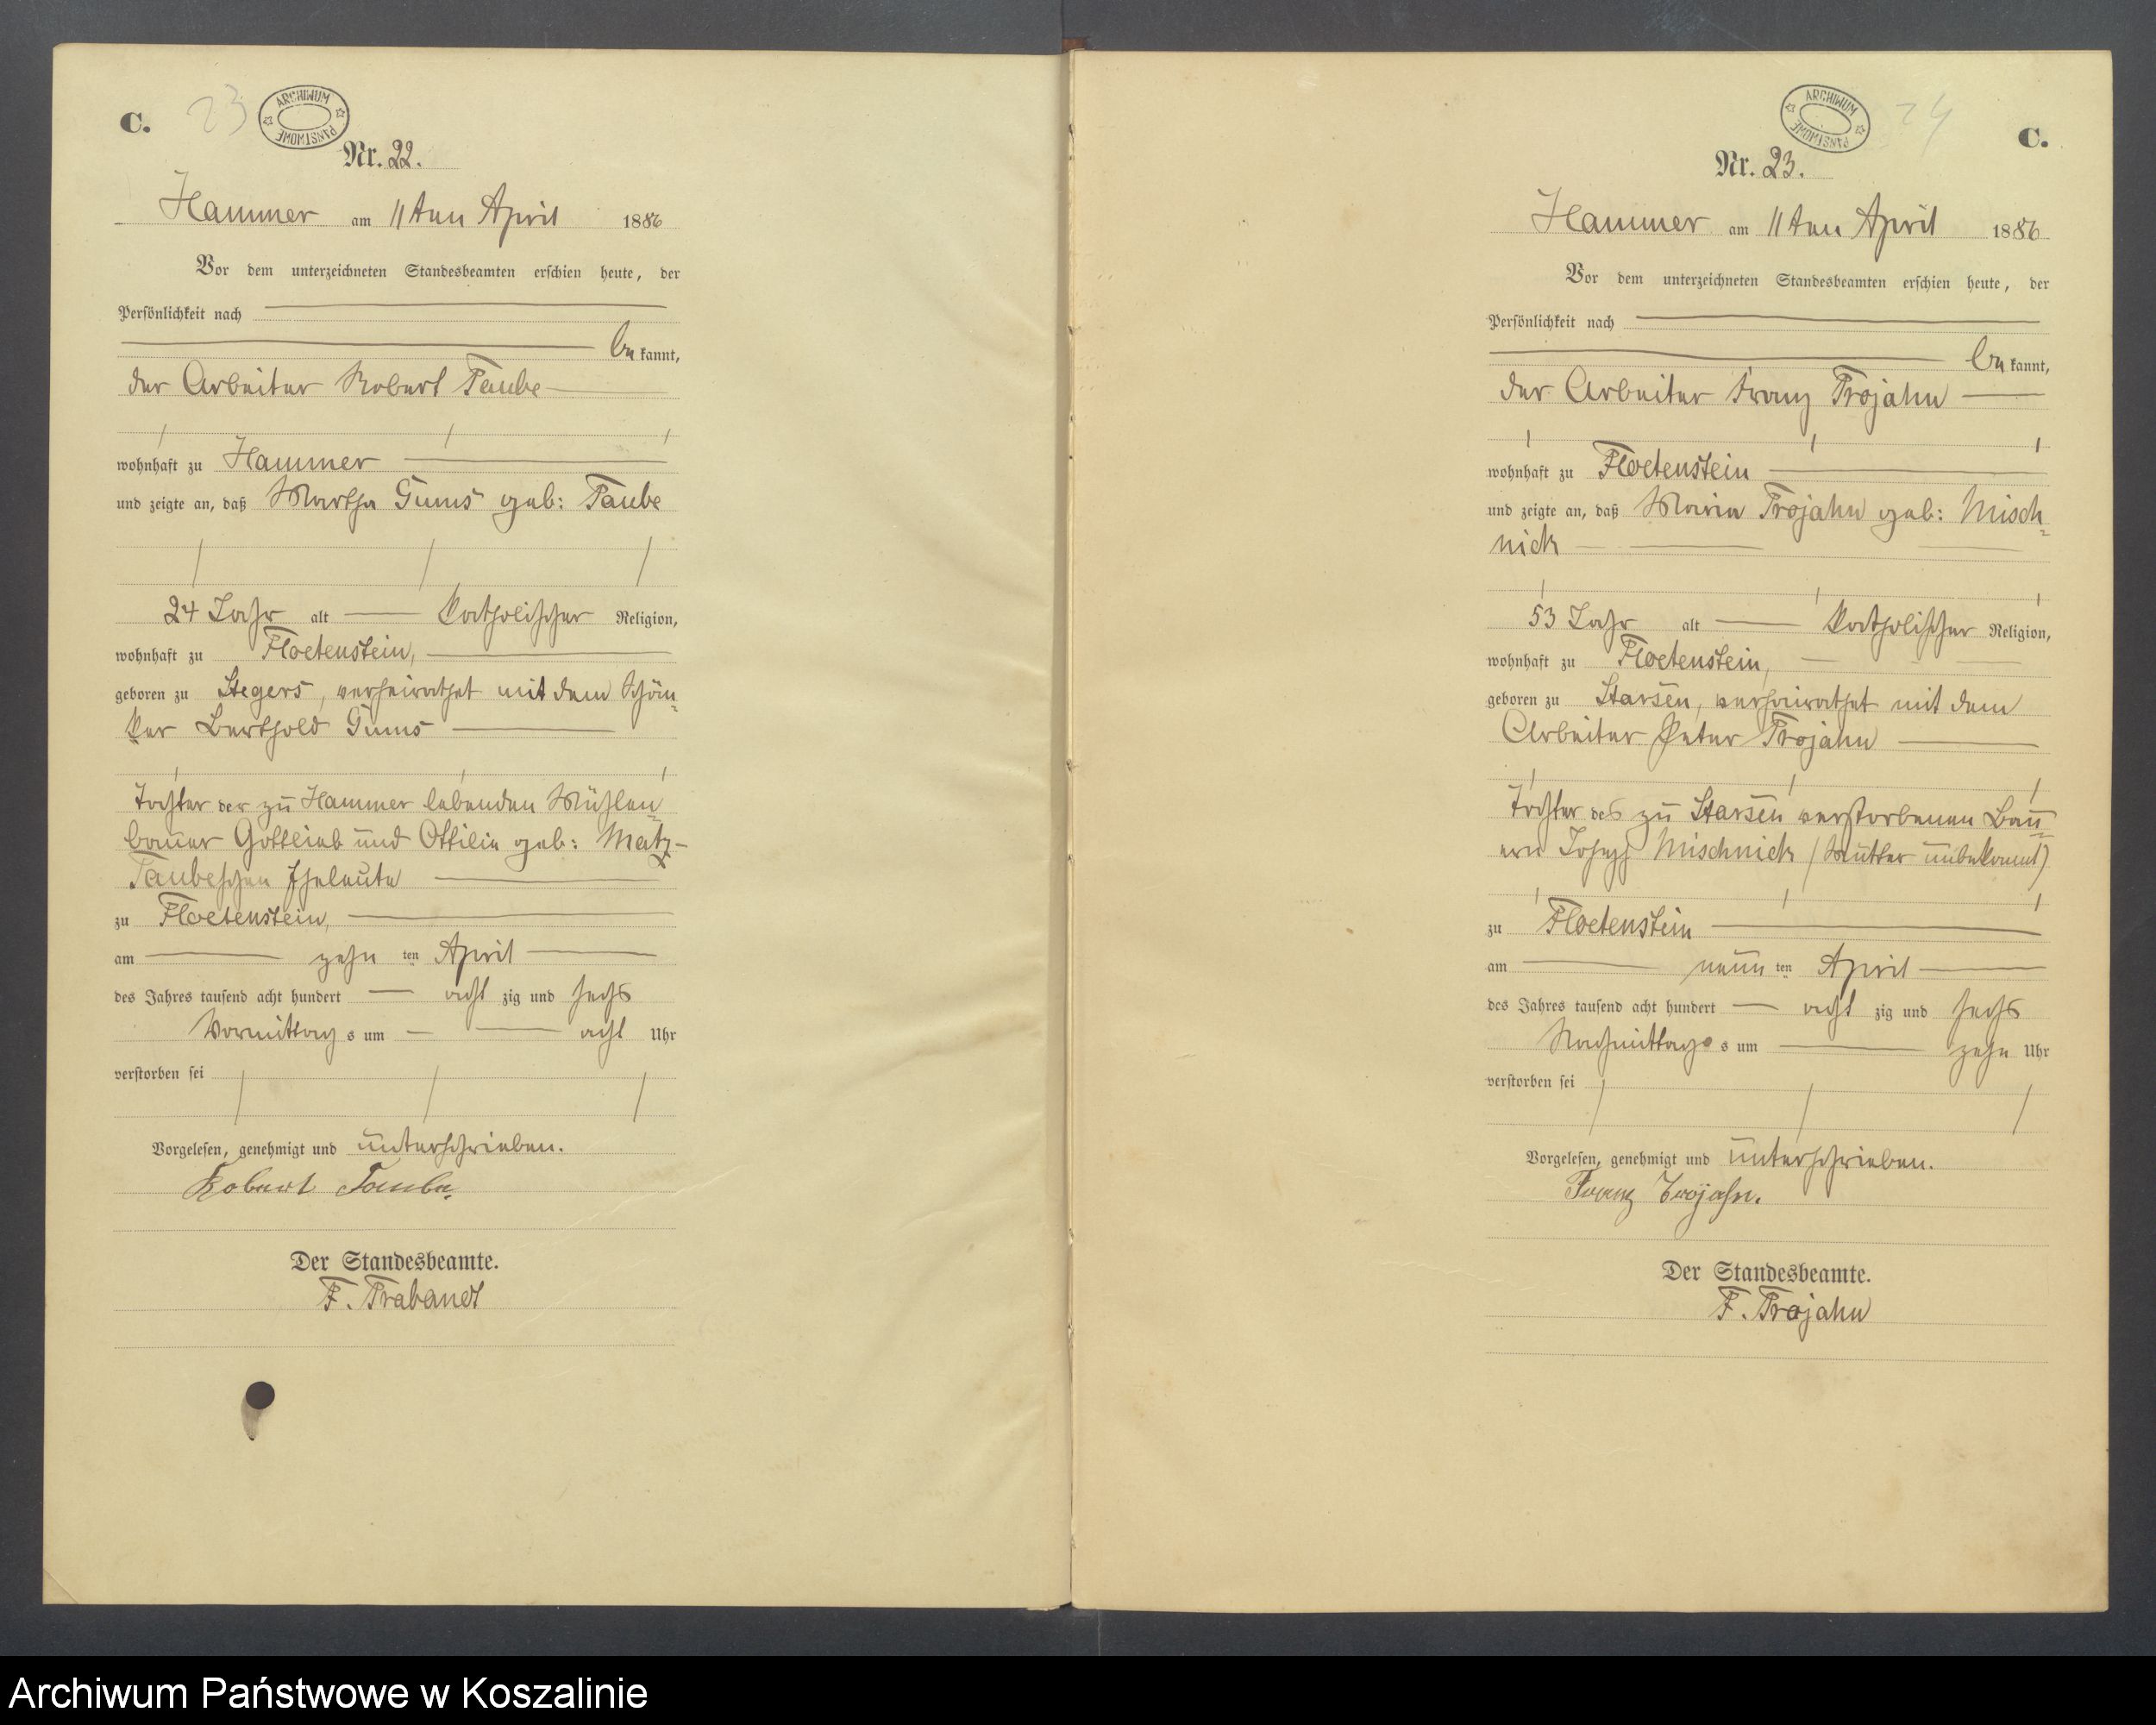 C.
23
ARCHIWUM PAŃSTWOWE
Nr. 22.
Hammer am 11ten April 1886
Vor dem unterzeichneten Standesbeamten erschien heute, der
Persönlichkeit nach
bekannt,
der Arbeiter Robert Taube
wohnhaft zu Hammer
und zeigte an, daß Martha Gums geb: Taube
24 Jahr alt katholischer Religion,
wohnhaft zu Floetenstein,
geboren zu Stegers, verheirathet mit dem Schän=
ker Berthold Gums
Tochter der zu Hammer lebenden Mühlen=
bauer Gottlieb und Ottilie geb: Matz-
Taubeschen Eheleute
zu Floetenstein,
am zehn ten April
des Jahres tausend acht hundert acht zig und sechs
Vormittag s um acht Uhr
verstorben sei
Vorgelesen, genehmigt und unterschrieben.
Robert Taube.
Der Standesbeamte.
F. Trabandt
ARCHIWUM PAŃSTWOWE
24
C.
Nr. 23.
Hammer am 11ten April 1886
Vor dem unterzeichneten Standesbeamten erschien heute, der
Persönlichkeit nach
bekannt,
der Arbeiter Franz Trojahn
wohnhaft zu Floetenstein
und zeigte an, daß Maria Trojahn geb: Misch=
nick
53 Jahr alt katholischer Religion,
wohnhaft zu Floetenstein,
geboren zu Starsen, verheirathet mit dem
Arbeiter Peter Trojahn
Tochter des zu Starsen verstorbenen Bau=
ern Joseph Mischnick (Mutter unbekannt)
zu Floetenstein
am neun ten April
des Jahres tausend acht hundert acht zig und sechs
Nachmittags s um zehn Uhr
verstorben sei
Vorgelesen, genehmigt und unterschrieben.
Franz Trojahn.
Der Standesbeamte.
F. Trojahn
Archiwum Państwowe w Koszalinie